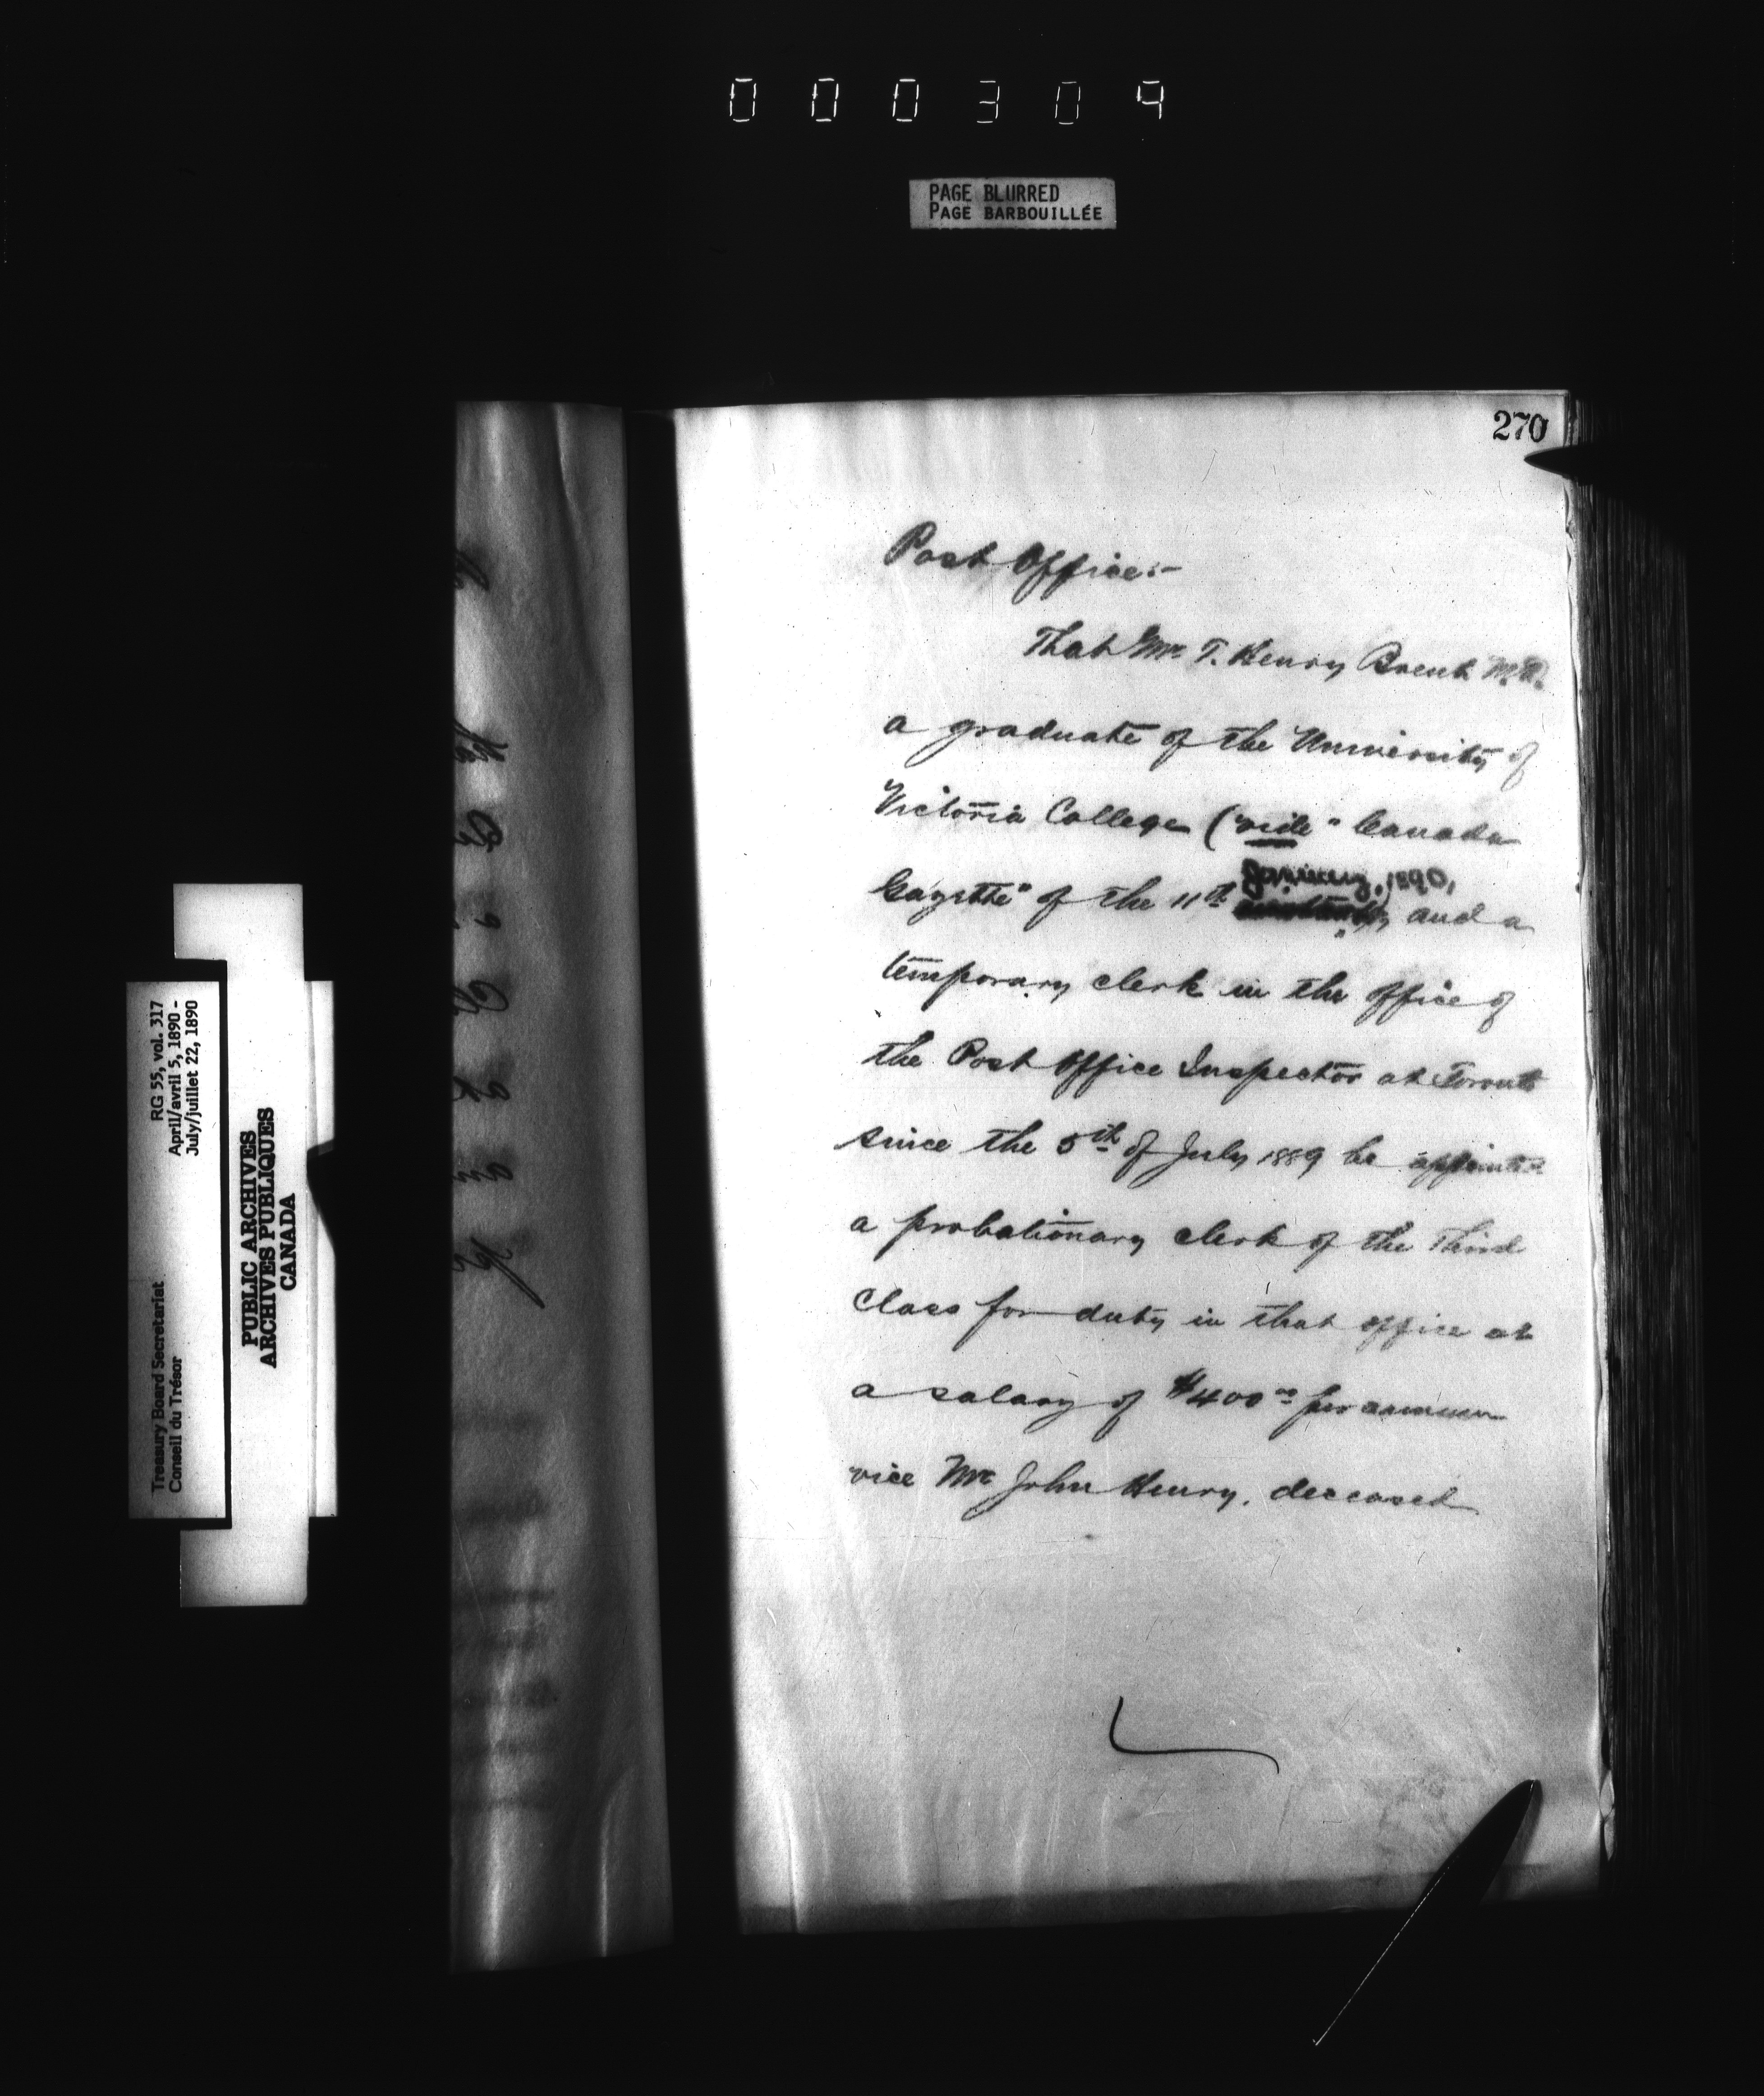 000309
PAGE BLURRED
PAGE BARBOUILLÉE
270
Post Office:-
That Mr. T. Henry Brent
a graduate of the University of
Victoria College ("vide" Canada
Gazette" of the 11th January, 1890, and a
temporary clerk in the office of
the Post Office Inspector at Toronto
since the 5th of July 1889 be appointed
a probationary clerk of the Third
Class for duty in that office at
a salary of $400.00 per annum
vice Mr John Henry, deceased
RG 55, vol. 317
April/avril 5, 1890 -
July/juillet 22, 1890
Treasury Board Secretariat
Conseil du Trésor
PUBLIC ARCHIVES
ARCHIVES PUBLIQUES
CANADA